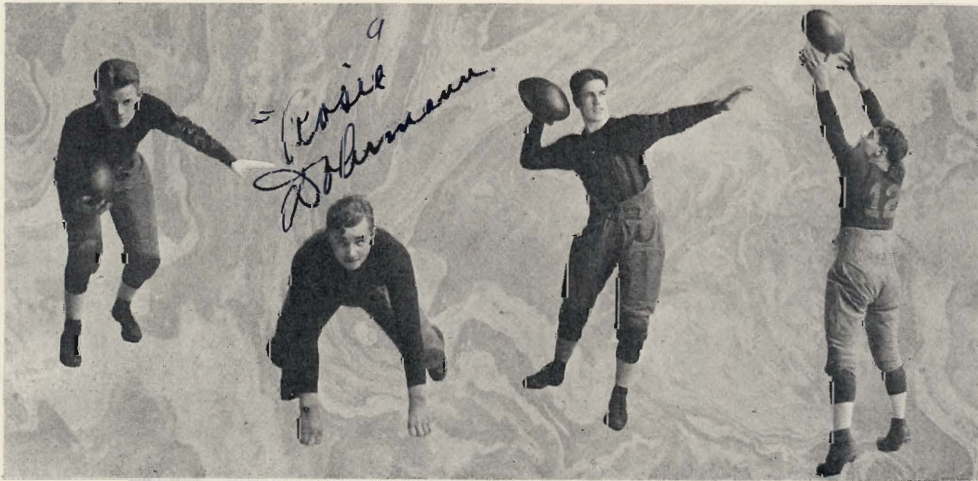 "Rosie"
Dohrmann.
12